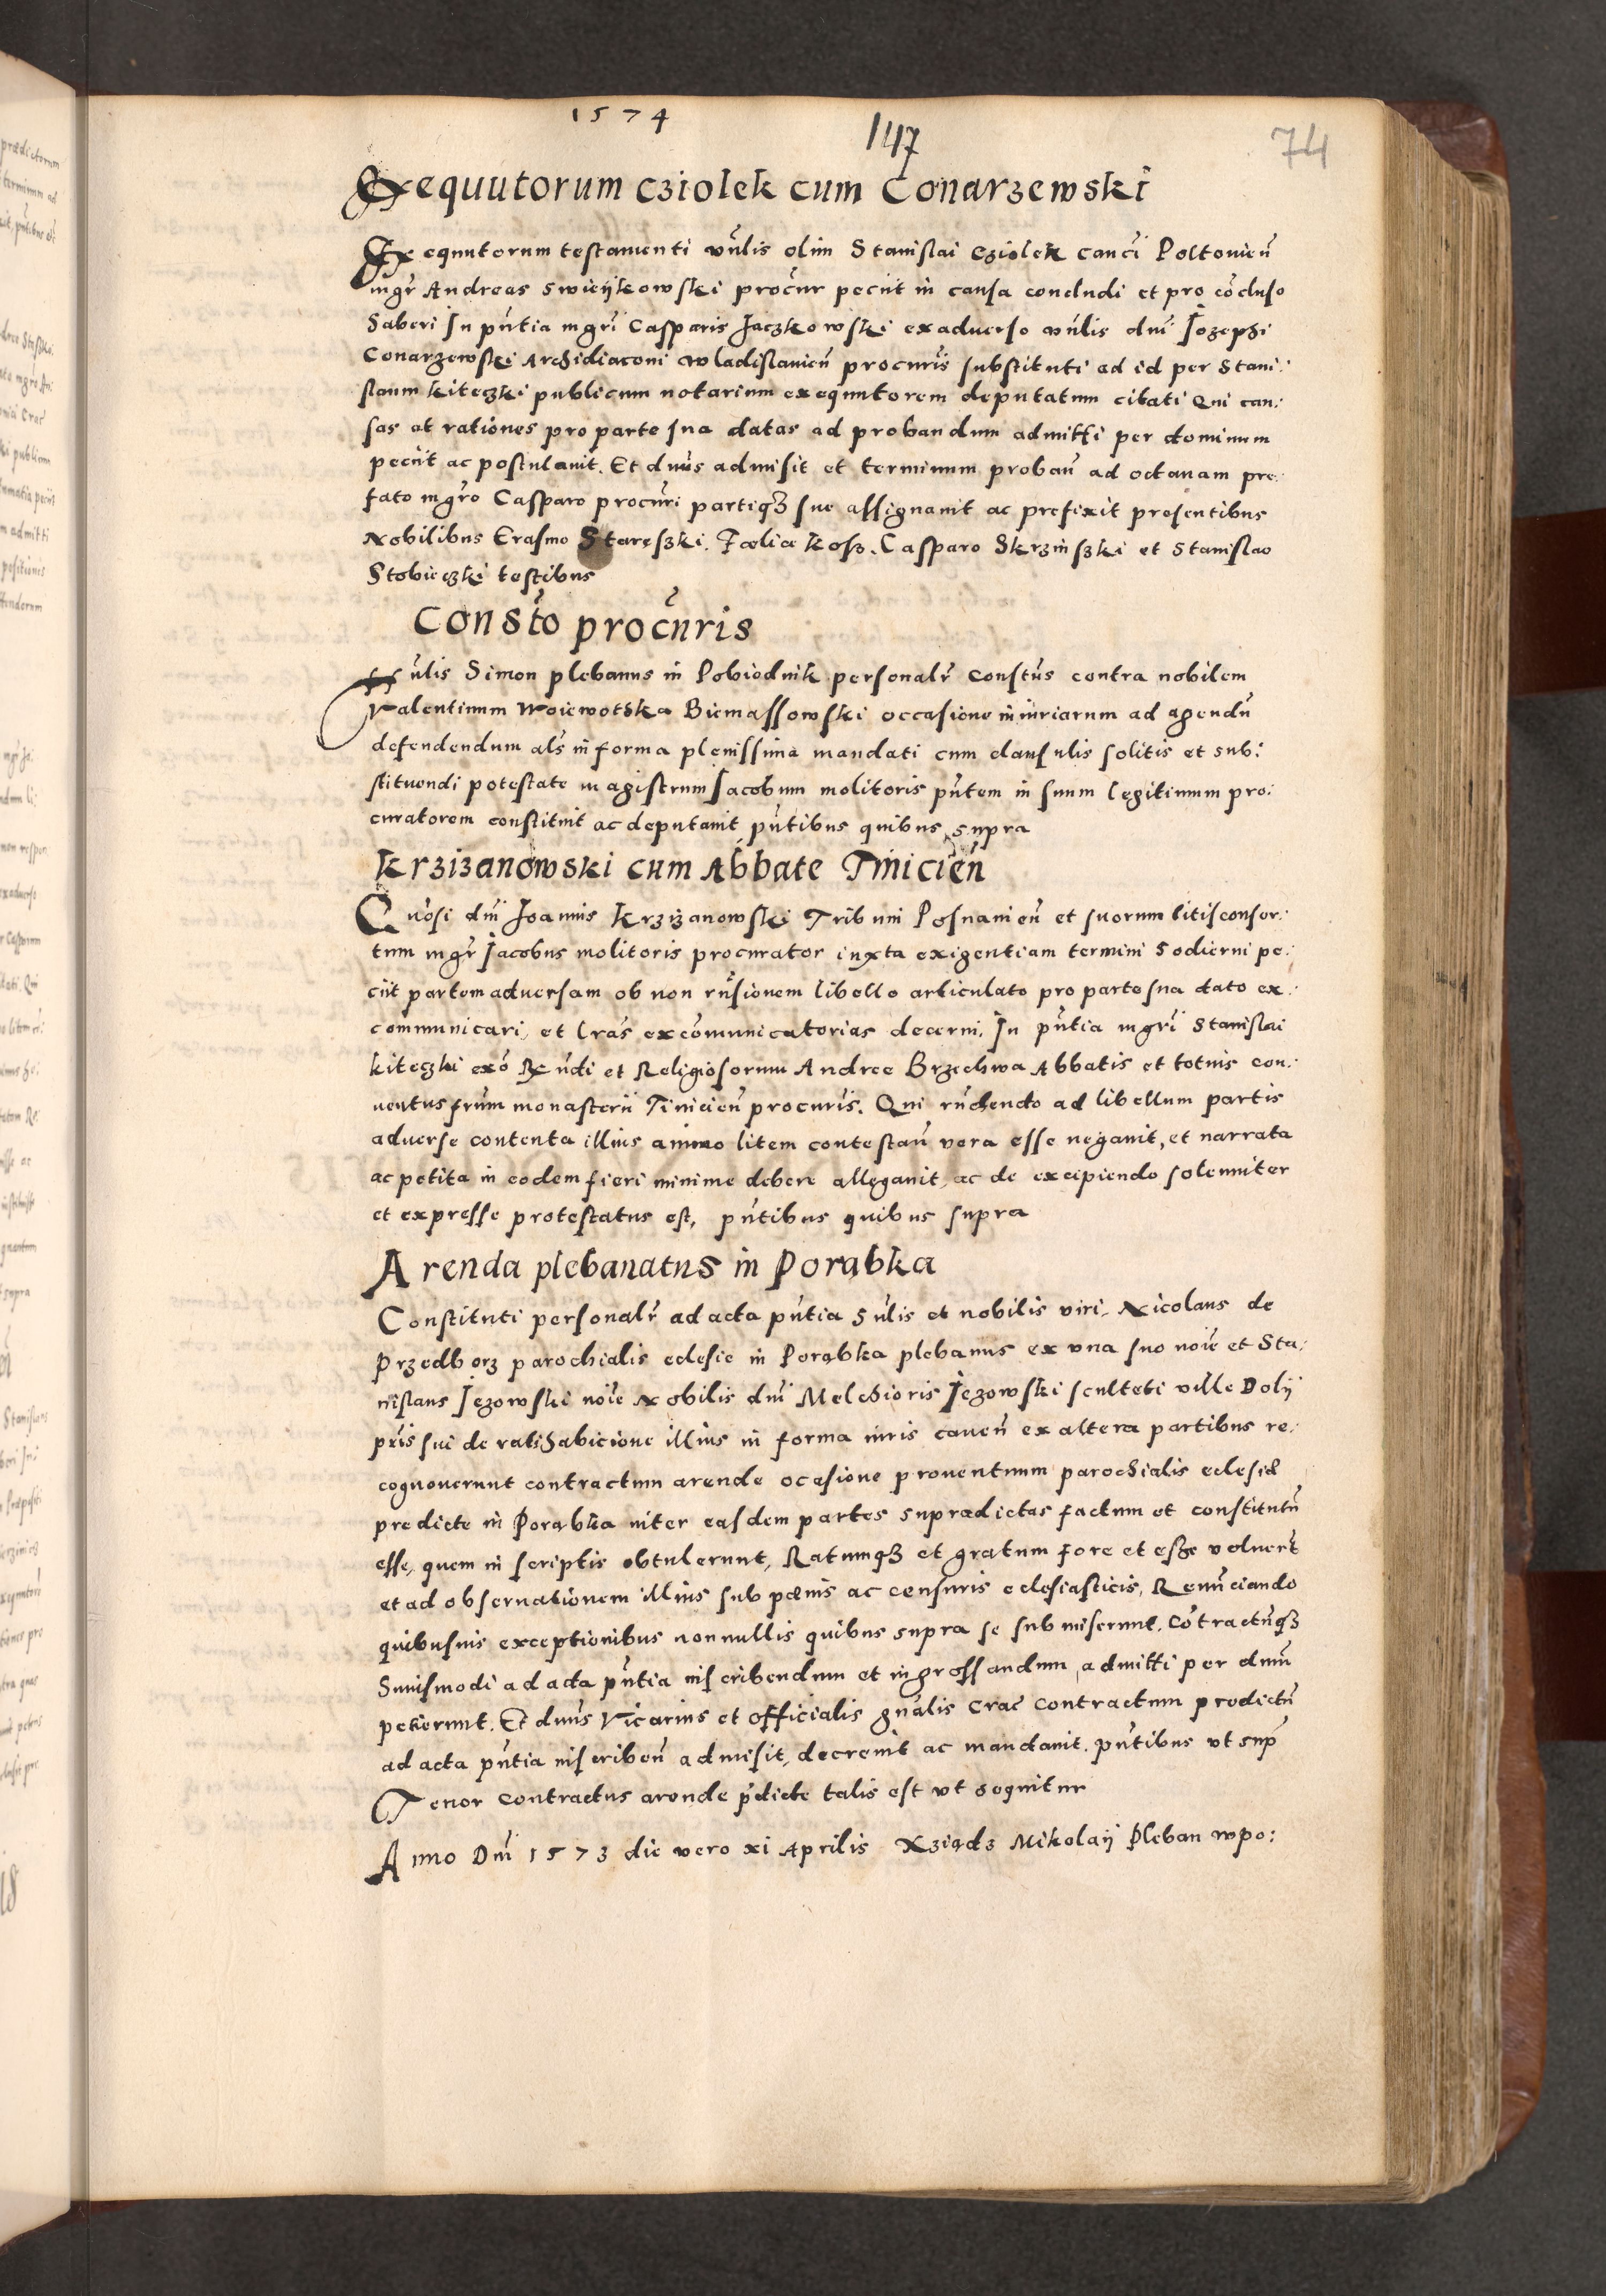 1574
147
74
Exequutorum Cziolek cum Conarzewski
Exequutorum testamenti vn̄lis olim Stanislai Cziolek canc̄i Poltovien̄
mgr̄ Andreas Swieijkowski procūr peciit in causa concludi et pro cōcluso
haberi In pn̄tia mgri Casparis Jaczkowski exadverso vn̄lis dnī Jozephi
Conarzewski Archidiaconi wladislavien̄ procuris substituti ad id per Stani:
slaum kiteczki publicum notarium exequutorem deputatum citati Qui cau:
sas et rationes pro parte sua datas ad probandum admitti per dominum
peciit ac postulavit. Et dnūs admisit et terminum proban̄ ad octavam pre:
fato mgr̄o Casparo procuri partiqȝ sue assignavit ac prefixit presentibus
Nobilibus Erasmo Staręszki, Fœlice kosz, Casparo Skrzinszki et Stanislao
Stobieczki testibus
Constō procuris
Hn̄lis Simon plebanus in Pobiednik personalr̄ constūs contra nobilem
Valentinum Woiewotska Biemassowski occasione iniuriarum ad agendū
defendendum als̄ in forma plenissima mandati cum clausulis solitis et sub:
stituendi potestate magistrum Jacobum molitoris pn̄tem in suum legitimum pro:
curatorem constituit ac deputavit pn̄tibus quibus supra
krzizanowski cum Abbate Tinicień
Gn̄osi dnī Joannis krzizanowski Tribuni Posnanien̄ et suorum litisconsor:
tum mgr̄ Jacobus molitoris procurator iuxta exigentiam termini hodierni pe:
ciit partem adversam ob non rn̄sionem libello articulato pro parte sua dato ex:
communicari, et lras̄ excōmunicatorias decerni, In pn̄tia mgri Stanislai
kiteczki exō Rn̄di et Religiosorum Andree Brzechwa Abbatis et totius con:
ventus frum̄ monasterii Tinicien̄ procuris. Qui rn̄dendo ad libellum partis
adverse contenta illius animo litem contestan̄ vera esse negavit, et narrata
ac petita in eodem fieri minime debere allegavit, ac de excipiendo solemniter
et expresse protestatus est, pn̄tibus quibus supra
Arenda plebanatus in Porąbka
Constituti personalr̄ ad acta pn̄tia hn̄lis et nobilis viri, Nicolaus de
Przedborz parochialis eclesie in Porąbka plebanus ex una suo noīe et Sta:
nislaus Jezowski noīe Nobilis dnī Melchioris Jezowski sculteti ville Dolij
pris̄ sui de ratihabicione illius in forma iuris caven̄ ex altera partibus re:
cognoverunt contractum arende ocasione proventuum parochialis eclesiæ
predicte in Porąbka inter easdem partes supradictas factum et constitutū
esse, quem in scriptis obtulerunt, Ratumqȝ et gratum fore et esse voluerūt
et ad observationem illius sub pœnis ac censuris eclesiasticis, Renūciando
quibusuis exceptionibus nonnullis quibus supra se submiserunt, Cōtractūqȝ
huiusmodi ad acta pn̄tia inscribendum et ingrossandum, admitti per dnum̄
petierunt. Et dnūs Vicarius et officialis gnālis Crac̄ contractum predictū
ad acta pn̄tia inscriben̄ admisit, decrevit ac mandavit. pn̄tibus ut sup̄
Tenor contractus arende pdicte talis est ut sequitur
Anno Dnī 1573 die vero xi Aprilis Xziądz Mikolaij Pleban w po: